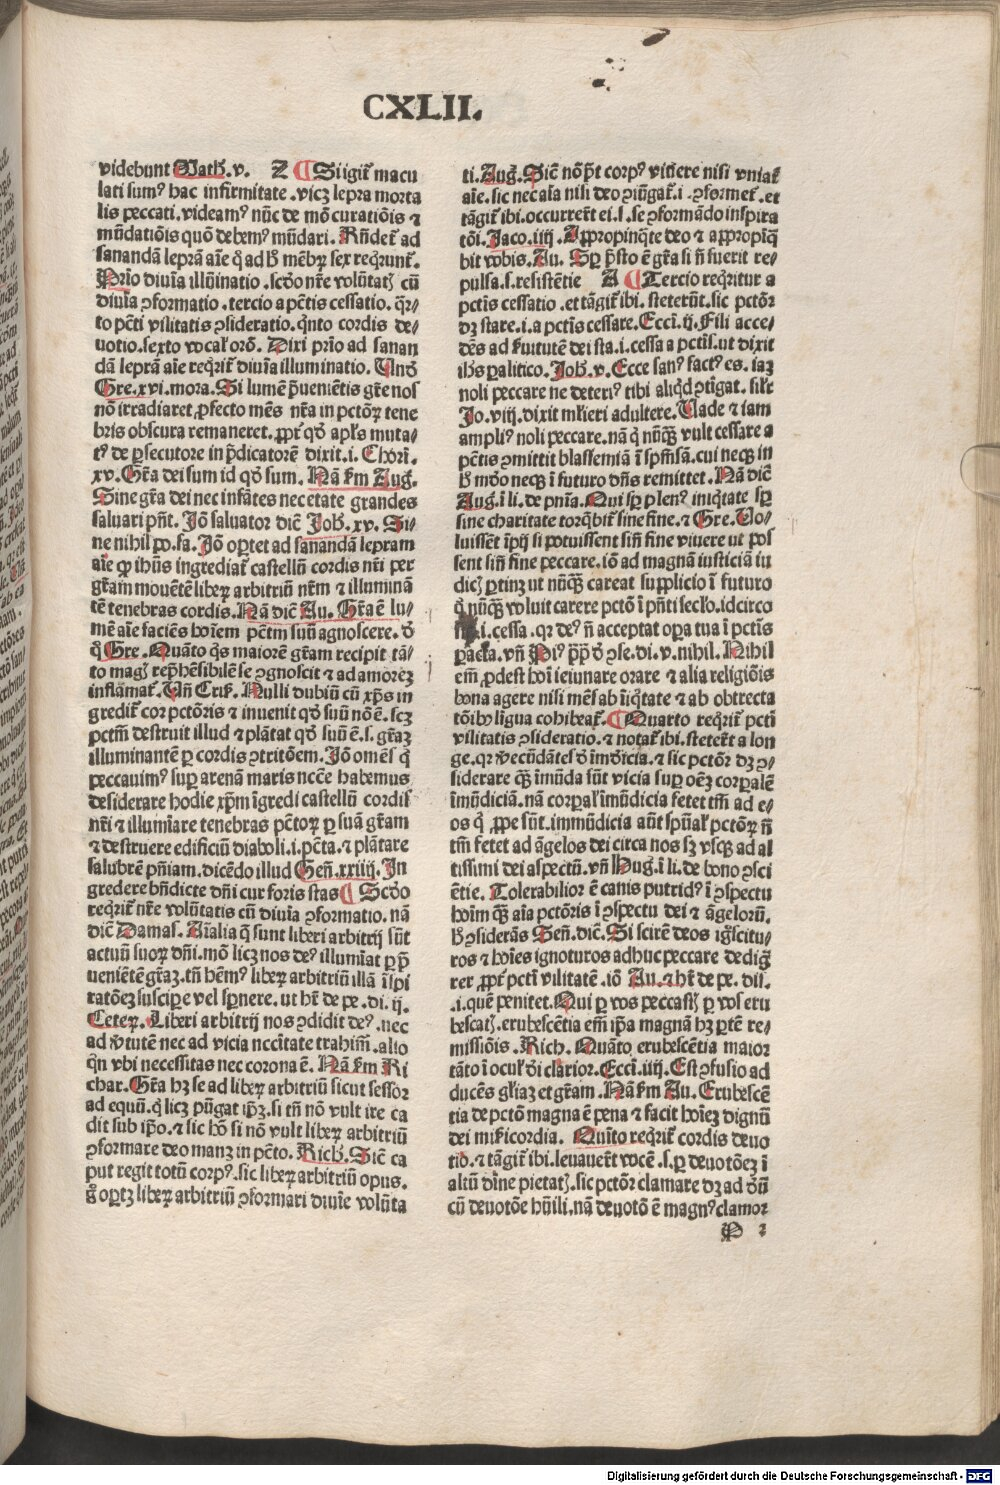 CXLII.
videbunt Math̄. v. Z ¶ Si igit᷑ macu
lati sumꝰ hac infirmitate .vicꝫ lepra morta
lis peccati. videamꝰ nūc de mō curatiōis ⁊
mūdatiōis quō debemꝰ mūdari. Rñdet᷑ ad
sanandā leprā aīe q̄ ad h̄ mēbꝝ sex reqrunt᷑.
Prīo diuīa illūinatio .scd̄o nr̄e volūtatꝭ cū
diuīa ꝯformatio .tercio a pctīs cessatio. q̄r⸗
to pctī vilitatis ꝯsideratio .qnto cordis de⸗
uotio. sexto vocal᷑ orō. Dixi prīo ad sanan
dā leprā aīe reqrit᷑ diuīa illuminatio. Vnd̄
Gre. xvi. mora. Si lumē p̄ueniētis gr̄e nos
nō irradiaret, ꝓfecto mēs nr̄a in pctōꝝ tene
bris obscura remaneret. ꝓpt᷑ qd̄ apl̄s muta⸗
tꝰ de ꝑsecutore in p̄dicatorē dixit. i. Chori.
xv. Gr̄a dei sum id qd̄ sum. Nā ẜm Aug.
Sine gr̄a dei nec infātes nec etate grandes
saluari pn̄t. Jō saluator dic̄ Joh̄. xv. Si⸗
ne nihil po. fa. Jō oꝑtet ad sanandā lepram
aīe ꝙ ihūs ingrediat᷑ castellū cordis nr̄i per
gr̄am mouētē libeꝝ arbitriū nr̄m ⁊ illuminā
tē tenebras cordis. Nā dic̄ Au. Gr̄a ē lu⸗
mē aīe faciēs hoīem pctm̄ suū agnoscere. v̄
q̄ Gre. Quāto qs maiorē gr̄am recipit tā⸗
to magꝭ rep̄hēsibilē se ꝯgnoscit ⁊ ad amoreꝫ
inflāmat᷑. Vn̄ Cris. Nulli dubiū cū xp̄s in
gredit᷑ cor pctōris ⁊ inuenit qd̄ suū nō ē. scꝫ
pctm̄ destruit illud ⁊ plātat qd̄ suū ē. s. gr̄aꝫ
illuminantē ꝑ cordis ꝯtritōem. Jō omēs q̄
peccauimꝰ suꝑ arenā maris nccē habemus
desiderare hodie xp̄m īgredi castellū cordis
nr̄i ⁊ illumīare tenebras pctōꝝ ꝑ suā gr̄am
⁊ destruere edificiū diaboli .i. pctā. ⁊ plātare
salubrē pn̄iam. dicēdo illud Gen̄. xxiiij. In
gredere bn̄dicte dn̄i cur foris stas ¶ Scd̄o
reqrit᷑ nr̄e volūtatis cū diuīa ꝯformatio. nā
dic̄ Damas. Aīalia q̄ sunt liberi arbitrij sūt
actuū suoꝝ dn̄i. mō licꝫ nos deꝰ illumīat ꝑ p̄
ueniētē gr̄aꝫ. tn̄ hēmꝰ libeꝝ arbitriū illā īspi
ratōeꝫ suscipe vel spnere. vt hr̄ de pe. di. ij.
Ceteꝝ. Liberi arbitrij nos ꝯdidit deꝰ. nec
ad v̓tutē nec ad vicia nccītate trahim̄. alio
qn vbi necessitas nec corona ē. Nā ẜm Ri
char. Gr̄a hꝫ se ad libeꝝ arbitriū sicut sessor
ad equū. q̄ licꝫ pūgat ip̄ꝫ. si tn̄ nō vult ire ca
dit sub ip̄o. ⁊ sic hō si nō vult libeꝝ arbitriū
ꝯformare deo manꝫ in pctō. Rich̄. Sic̄ ca
put regit totū corpꝰ. sic libeꝝ arbitriū opus.
g̊ oportꝫ libeꝝ arbitriū ꝯformari diuīe volūta
ti. Aug. Sic̄ nō pt̄ corpꝰ viuere nisi vniat᷑
aīe. sic nec aīa nisi deo ꝯiūgat᷑. i. ꝯformet᷑. et
tāgit᷑ ibi. occurrert̄ ei. i. se ꝯformādo inspira
tōi. Jaco. iiij. Appropinq̄te deo ⁊ appropīq̄
bit vobis. Au. Sꝑ p̄sto ē gr̄a si n̄ fuerit re⸗
pulsa. s. resistētie A ¶ Tercio reqritur a
pctīs cessatio .et tāgit᷑ ibi. steterūt. sic pctōr
dꝫ stare. i. a pctīs cessare. Ecci. ij. Fili acce⸗
dēs ad s̓uitutē dei sta. i. cessa a pctīs. vt dixit
ih̄s ꝑalitico. Joh̄. v. Ecce sanꝰ factꝰ es. iaꝫ
noli peccare ne deteriꝰ tibi aliqd ꝯtigat. sil̓r
Jo. viij. dixit ml̓ieri adultere. Vade ⁊ iam
ampliꝰ noli peccare. nā q̄ nūqꝫ vult cessare a
pctīs ꝯmittit blasfemiā ī sp̄msm̄. cui necꝫ in
h̄ mūdo necꝫ ī futuro dn̄s remittet. Nā dic̄
Aug. ī li. de pn̄ia. Qui sꝑ plenꝰ iniq̄tate sꝑ
sine charitate torq̄bit᷑ sine fine. ⁊ Gre. Vo⸗
luissēt īpij si potuissent sin̄ fine viuere vt pos
sent sin̄ fine peccare. iō ad magnā iusticiā iu
dicꝭ ꝑtinꝫ vt nūqꝫ careat supplicio ī futuro
q̄ nūqꝫ voluit carere pctō ī pn̄ti secl̓o. idcirco
sta. i. cessa. qꝛ deꝰ n̄ acceptat oꝑa tua ī pctīs
ꝑacta. vn̄ Piꝰ pp̄ d̄ ꝯse. di. v. nihil. Nihil
em̄ ꝓdest hoī ieiunare orare ⁊ alia religiōis
bona agere nisi mēs ab īiq̄tate ⁊ ab obtrecta
tōibꝰ līgua cohibeat᷑. ¶ Quarto reqrit᷑ pctī
vilitatis ꝯsideratio .⁊ notat᷑ ibi. stetert̄ a lon
ge. qꝛ v̓ecūdātes d̄ īmūdicia. ⁊ sic pctōr dꝫ ꝯ⸗
siderare qꝫ īmūda sūt vicia suꝑ oēꝫ corꝑalē
īmūdiciā. nā corꝑal᷑ īmūdicia fetet tm̄ ad e⸗
os q̄ ꝓpe sūt. immūdicia aūt spūal᷑ pctōꝝ n̄
tm̄ fetet ad āgelos dei circa nos sꝫ vsqꝫ ad al
tissimi dei aspectū. vn̄ Hug. ī li. de bono ꝯsci
ētie. Tolerabilior ē canis putridꝰ ī ꝯspectu
hoīm qꝫ aīa pctōris ī ꝯspectu dei ⁊ āgelorū.
h̄ ꝯsiderās Sen̄. dic̄. Si scirē deos igscitu⸗
ros ⁊ hoīes ignoturos adhuc peccare dedig
rer ꝓpt᷑ pctī vilitatē. iō Au. ⁊ hr̄ de pe. dis.
.i. quē penitet. Qui ꝑ vos peccastꝭ ꝑ vos eru
bescatꝭ. erubescētia em̄ ip̄a magnā hꝫ ꝑtē re⸗
missiōis. Rich. Quāto erubescētia maior
tāto ī oculꝭ di clarior. Ecci. iiij. Est ꝯfusio ad
ducēs gl̓iaꝫ et gr̄am. Nā ẜm Au. Erubescē
tia de pctō magna ē pena ⁊ facit hoīeꝫ dignū
dei mis̓icordia. Quīto reqrit᷑ cordis deuo
tio. ⁊ tāgit᷑ ibi. leuauert̄ vocē. s. ꝑ deuotōeꝫ ī
altū diīne pietatꝭ. sic pctōr clamare dꝫ ad dn̄ū
cū deuotōe hūili. nā deuotō ē magnꝰ clamor
P 2
Digitalisierung gefördert durch die Deutsche Forschungsgemeinschaft - DFG